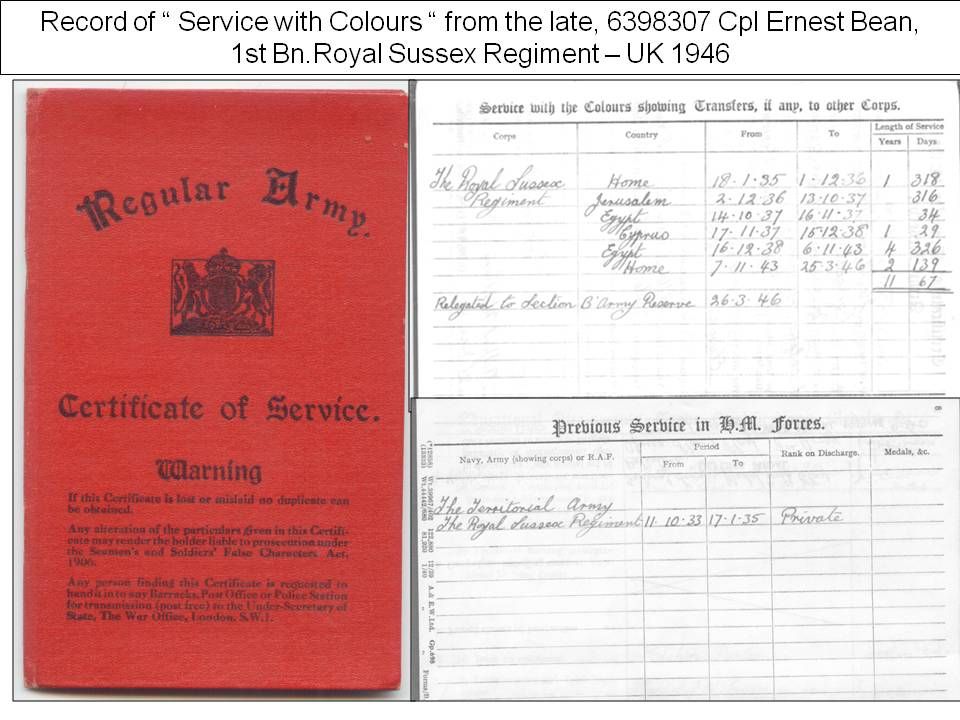 Record of “ Service with Colours “ from the late, 6398307 Cpl Ernest Bean,
1st Bn.Royal Sussex Regiment – UK 1946
Regular Army.
Certificate of Service.
Warning
If this Certificate is lost or mislaid no duplicate can
be obtained.
Any alteration of the particulars given in this Certifi-
cate may render the holder liable to prosecution under
the Seamen's and Soldiers' False Characters Act,
1906.
Any person finding this Certificate is requested to
hand it in to any Barracks, Post Office or Police Station
for transmission (post free) to the Under-Secretary of
State, The War Office, London, S.W.1.
Service with the Colours showing Transfers, if any, to other Corps.
Corps Country From To Length of Service
Years Days
The Royal Sussex Home 18·1·35 1·12·36 1 318
Regiment Jerusalem 2·12·36 13·10·37 316
Egypt 14·10·37 16·11·37 34
Cyprus 17·11·37 15·12·38 1 29
Egypt 16·12·38 6·11·43 4 326
Home 7·11·43 25·3·46 2 139
11 67
Relegated to Section B Army Reserve 26·3·46
8
Previous Service in H.M. Forces.
Navy, Army (showing corps) or R.A.F. Period Rank on Discharge. Medals, &c.
From To
The Territorial Army
The Royal Sussex Regiment 11·10·33 17·1·35 Private